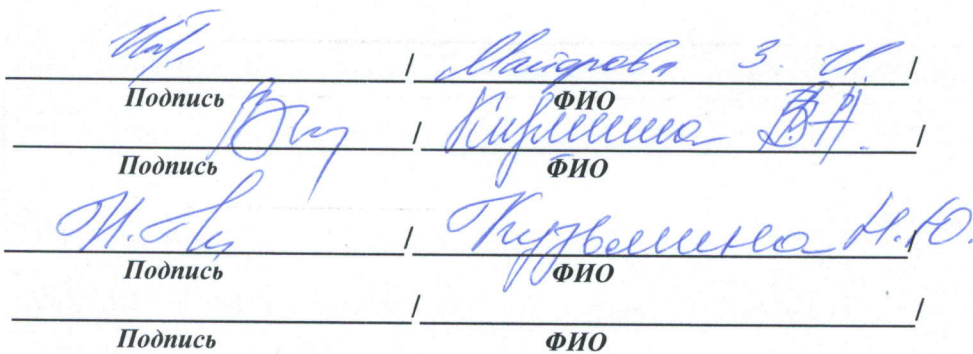 / Майорова З. И /
Подпись ФИО
/ Кузмина В.А. /
Подпись ФИО
/ Кузьмина Н.Ю. /
Подпись ФИО
/ /
Подпись ФИО